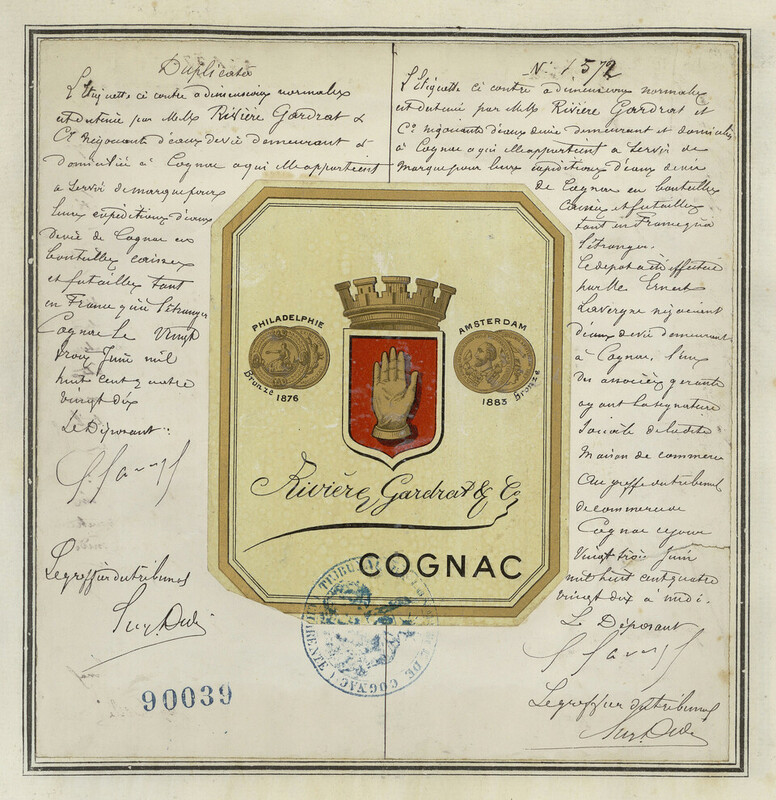 Duplicata
L'Etiquette ci contre a dimensions normales
est détenue par MMrs Rivière Gardrat &
Cie négociants d'eaux de vie demeurant et
domiciliés à Cognac a qui elle appartient
a servir de marque pour
leurs expéditions d'eaux
de vie de Cognac en
bouteilles caisses
et futailles tant
en France qu'à l'étranger
Cognac le Vingt
trois Juin mil
huit cent quatre
vingt dix
Le Déposant :
Le greffier du tribunal
90039
N° 1572
L'Etiquette ci contre a dimensions normales
est détenue par MMrs Rivière Gardrat et
Cie négociants d'eaux de vie demeurant et domiciliés
à Cognac a qui elle appartient a servir de
marque pour leurs expéditions d'eaux de vie
de Cognac en bouteilles
caisses et futailles
tant en France qu'à
l'étranger.
Le dépot a été effectué
par Mr Ernest
Lavergne négociant
d'eaux de vie demeurant
à Cognac, l'un
des associés gérants
ayant la signature
sociale de la dite
Maison de commerce
Au greffe du tribunal
de commerce de
Cognac ce jour
Vingt trois Juin
mil huit cent quatre
vingt dix à midi.
Le Déposant
Le greffier du tribunal
PHILADELPHIE
Bronze 1876
AMSTERDAM
1883 Bronze
Rivière Gardrat & Co
COGNAC
TRIBUNAL DE COGNAC